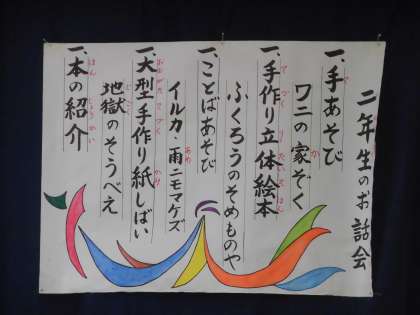 二年生のお話会
一、手あそび
ワニの家ぞく
一、手作り立体絵本
ふくろうのそめものや
一、ことばあそび
イルカ・雨ニモマケズ
一、大型手作り紙しばい
地獄のそうべえ
一、本の紹介